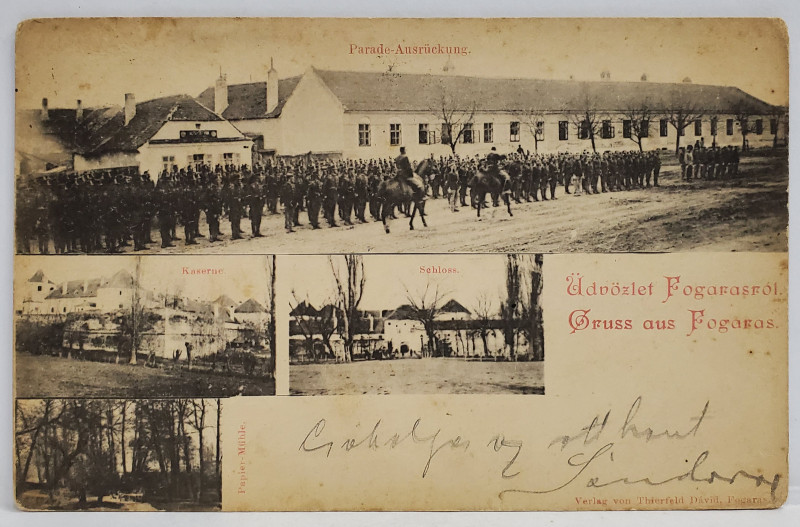 Parade-Ausrückung.
Kaserne
Schloss.
Üdvözlet Fogarasról.
Gruss aus Fogaras.
Papier-Mühle.
Csókolja az otthont
Sándor
Verlag von Thierfeld Dávid, Fogaras.